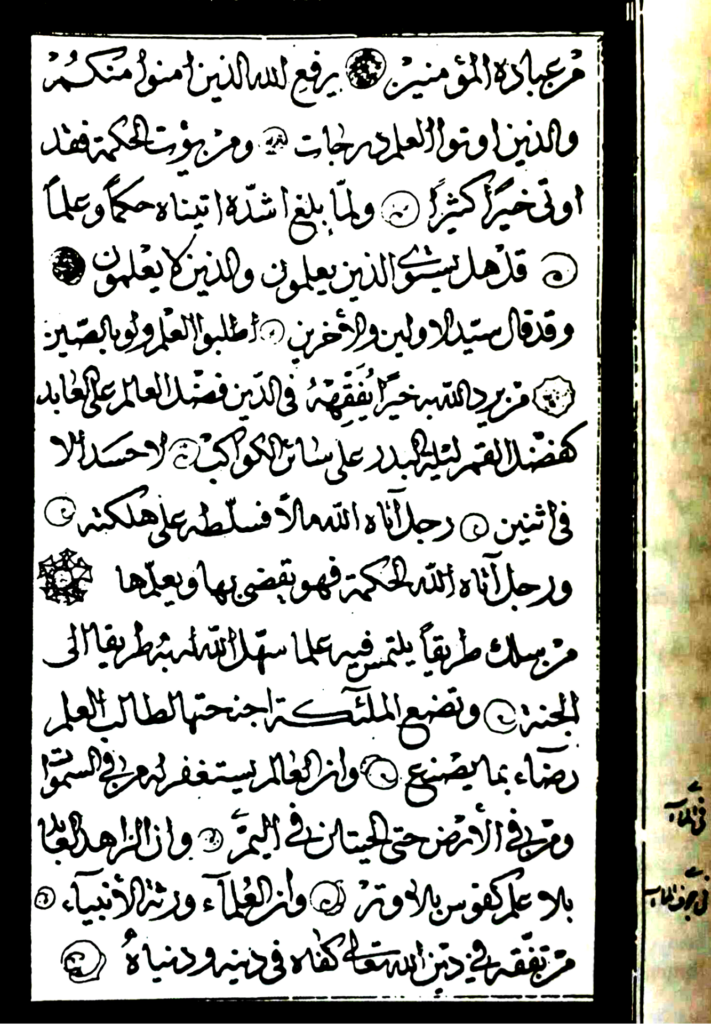 من عباده المؤمنين يرفع الله الذين امنوا منكم
والذين اوتوا العلم درجات ومن يؤت الحكمة فقد
اوتى خيرًا كثيرًا ولمّا بلغ اشدّه اتيناه حكمًا وعلمًا
قل هل يستوى الذين يعلمون والذين لا يعلمون
وقد قال سيّد الاولين والأخرين اطلبوا العلم ولو بالصّين
من يرد الله به خيرًا يُفَقِّههُ فى الدّين فضل العالم على العابد
كفضل القمر ليلة البدر على سائر الكواكب لا حسد الا
فى اثنين رجل آتاه الله مالاً فسلّطه على هلكته
ورجل آتاه الله الحكمة فهو يقضى بها ويعلّمها
من سلك طريقاً يلتمس فيه علما سهّل الله له به طريقا الى
الجنة وتضع الملئكة اجنحتها لطالب العلم
رضاء بما يصنع وان العالم يستغفر له من فى السموات
ومن فى الأرض حتى الحيتان فى اليمّ وان الزاهد
بلا علم كقوس بلا وتر وان العُلمآء ورثة الأنبيآء
من تفقّه فى دين الله تعالى كفاه فى دينه ودنياهُ
فى المآء